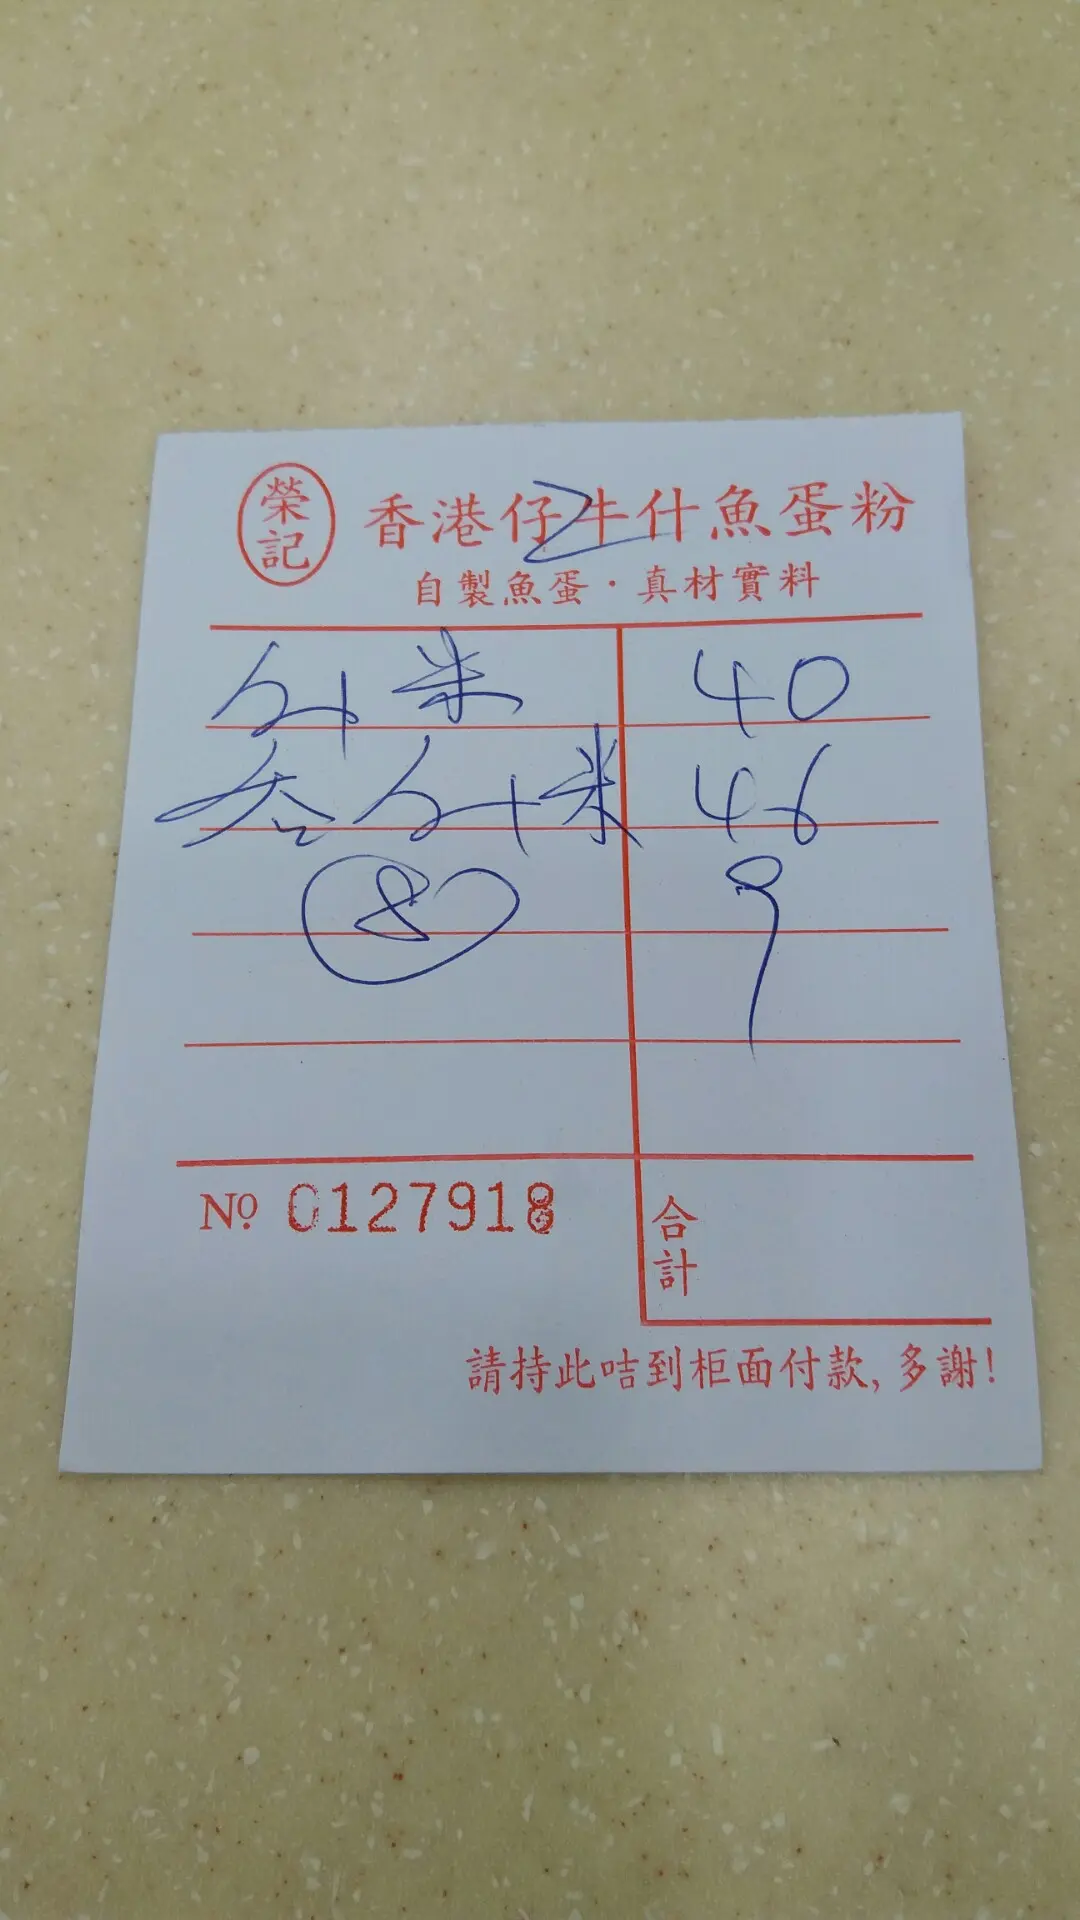 榮記
香港仔牛什魚蛋粉
2
自製魚蛋·真材實料
米 40
米 46
8 9
Nº 0127918
合計
請持此咭到柜面付款,多謝!